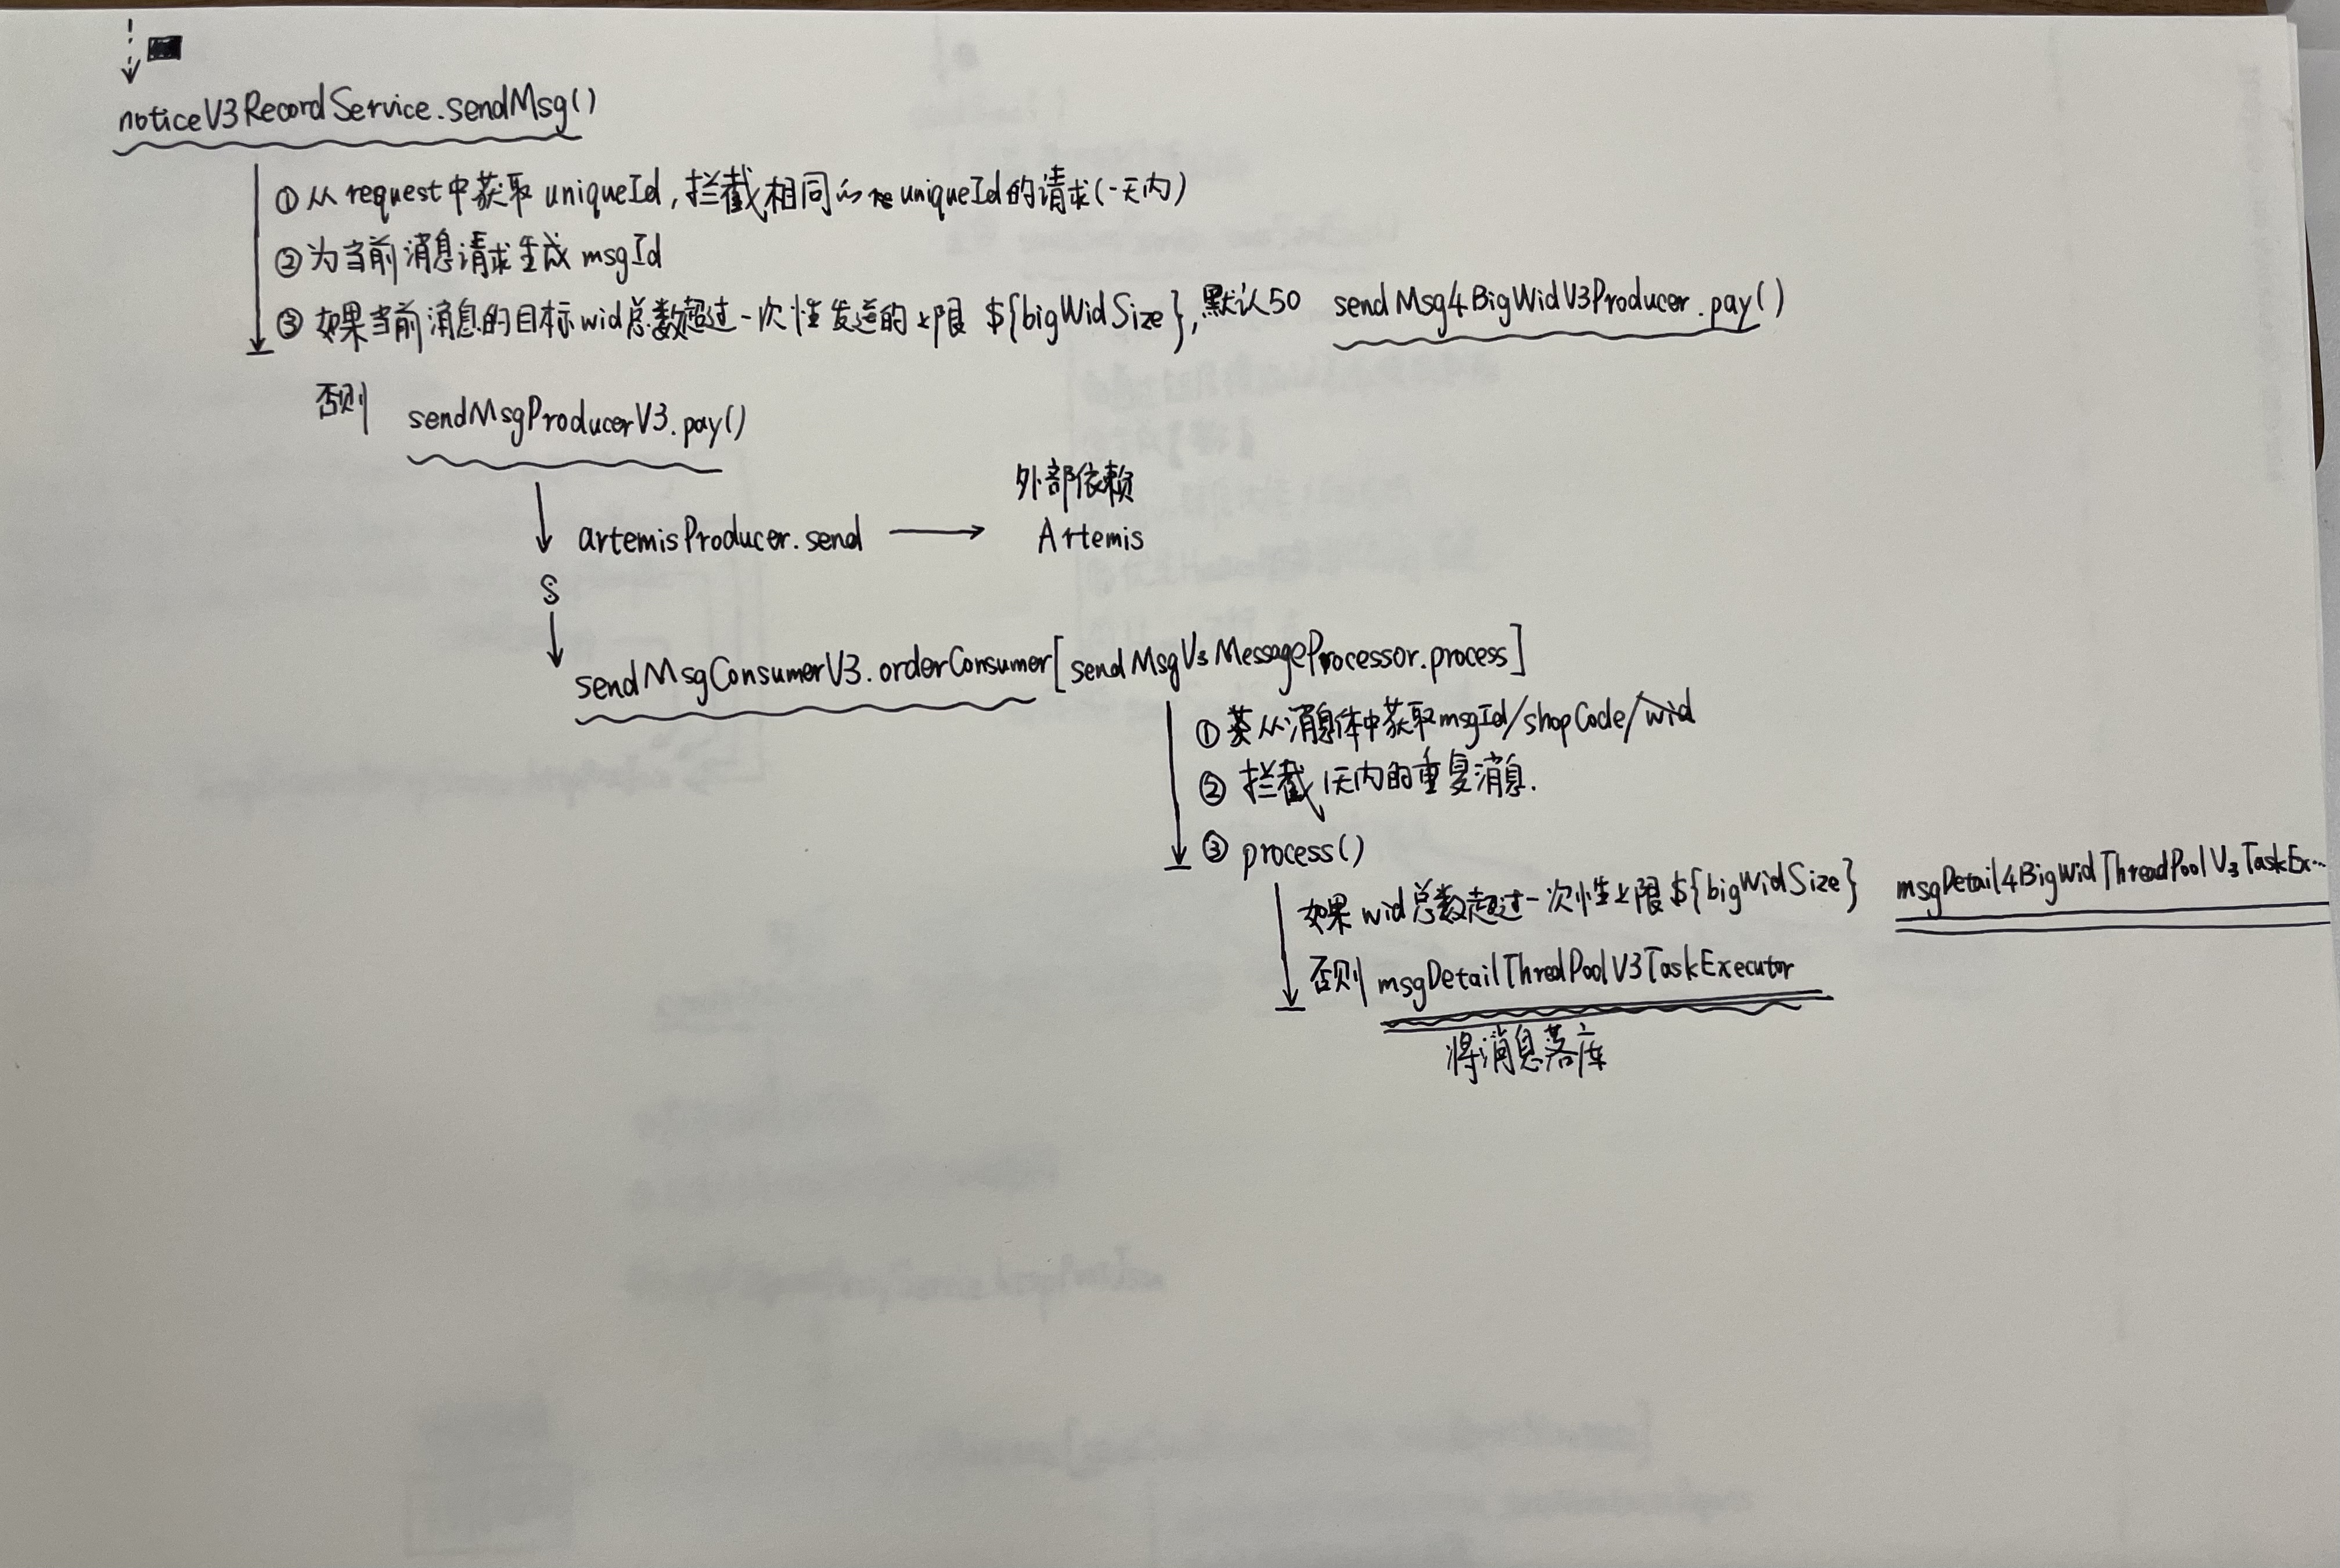 noticeV3RecordService.sendMsg()
①从request中获取 uniqueId,拦截相同的 uniqueId的请求(一天内)
②为当前消息请求生成 msgId
③如果当前消息的目标wid总数超过一次性发送的上限 ${bigWidSize},默认50 sendMsg4BigWidV3Producer.pay()
否则 sendMsgProducerV3.pay()
外部依赖
artemisProducer.send → Artemis
S
sendMsgConsumerV3.orderConsumer[sendMsgV3MessageProcessor.process]
①从消息体中获取msgId/shopCode/wid
②拦截1天内的重复消息.
③process()
如果wid总数超过一次性上限${bigWidSize} msgDetail4BigWidThreadPoolV3TaskEx...
否则 msgDetailThredPoolV3TaskExecutor
将消息落库